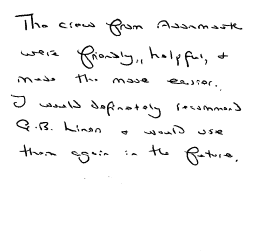 The crew from Avonmouth
were friendly, helpful, &
made the move easier.
I would definately recommend
G.B. Liners & would use
them again in the future.